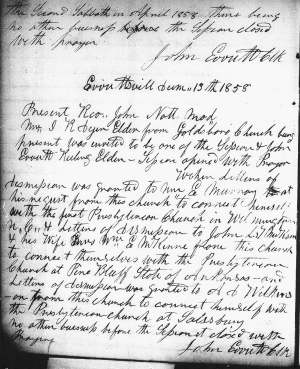 the Second Sabbath in April 1858 there being
no other business before the Session closed
with prayer
John Everitt Clk
Everittsvill June 13th 1858
Present Rev. John Nott Mod
Mr. I R Elder from Goldsboro Church being
present was invited to be one of the Session & John
Everitt Ruling Elder - Session opened With Prayer
Letters of
dismission was granted to Mr E Murray at
his request from this church to connect himself
with the first Presbyterian Church in Wilmington
N. C & Letters of dismission to John
& his wife Mrs Wm E McKinne from this church
to connect themselves with the Presbyterian
Church at Pine Bluff State of Arkansas - and
Letters of dismission was granted to
from this church to connect himself with
the Presbyterian church at Salisbury
no other business before the Session closed with
prayer
John Everitt Clk